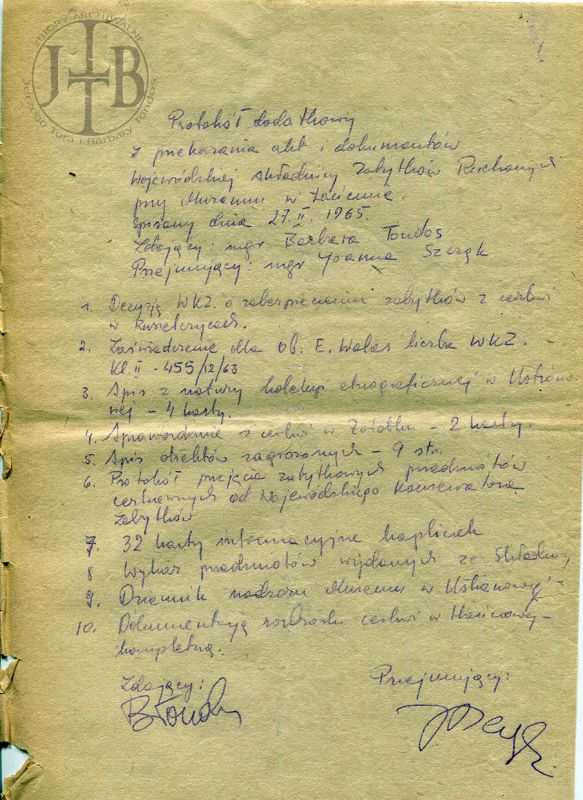 ZBIORY ARCHIWALNE
JTB
Jerzego Tura i Barbary Tondos
Protokół dodatkowy
z przekazania akt i dokumentów
Wojewódzkiej Składnicy Zabytków Ruchomych
przy Muzeum w Łańcucie.
Spisany dnia 27.II.1965.
Zdający: mgr Barbara Tondos
Przejmujący: mgr Joanna
1. Decyzja WKZ. o zabezpieczeniu zabytków z cerkwi
w
2. Zaświadczenie dla Ob. E. Walas liczba WKZ.
Kl. II - 455/12/63
3. Spis z natury kolekcji etnograficznej w Ustrzno-
wej - 4 karty.
4. Sprawozdanie z cerkwi w - 2 karty.
5. Spis obiektów zagrożonych - 9 str.
6. Protokół przejęcia zabytkowych przedmiotów
cerkiewnych od Wojewódzkiego Konserwatora
Zabytków
7. 32 karty informacyjne kapliczek
8 Wykaz przedmiotów wydanych ze Składnicy
9. Dziennik nadzoru Muzeum w
10. Dokumentacja rozbiórki cerkwi w -
kompletna.
Zdający: Przejmujący:
BTondos